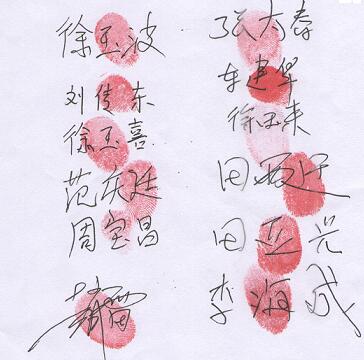 徐玉波
张大春
刘传东
车建华
徐玉喜
徐玉来
范庆廷
周宝昌
田亚光
李海成